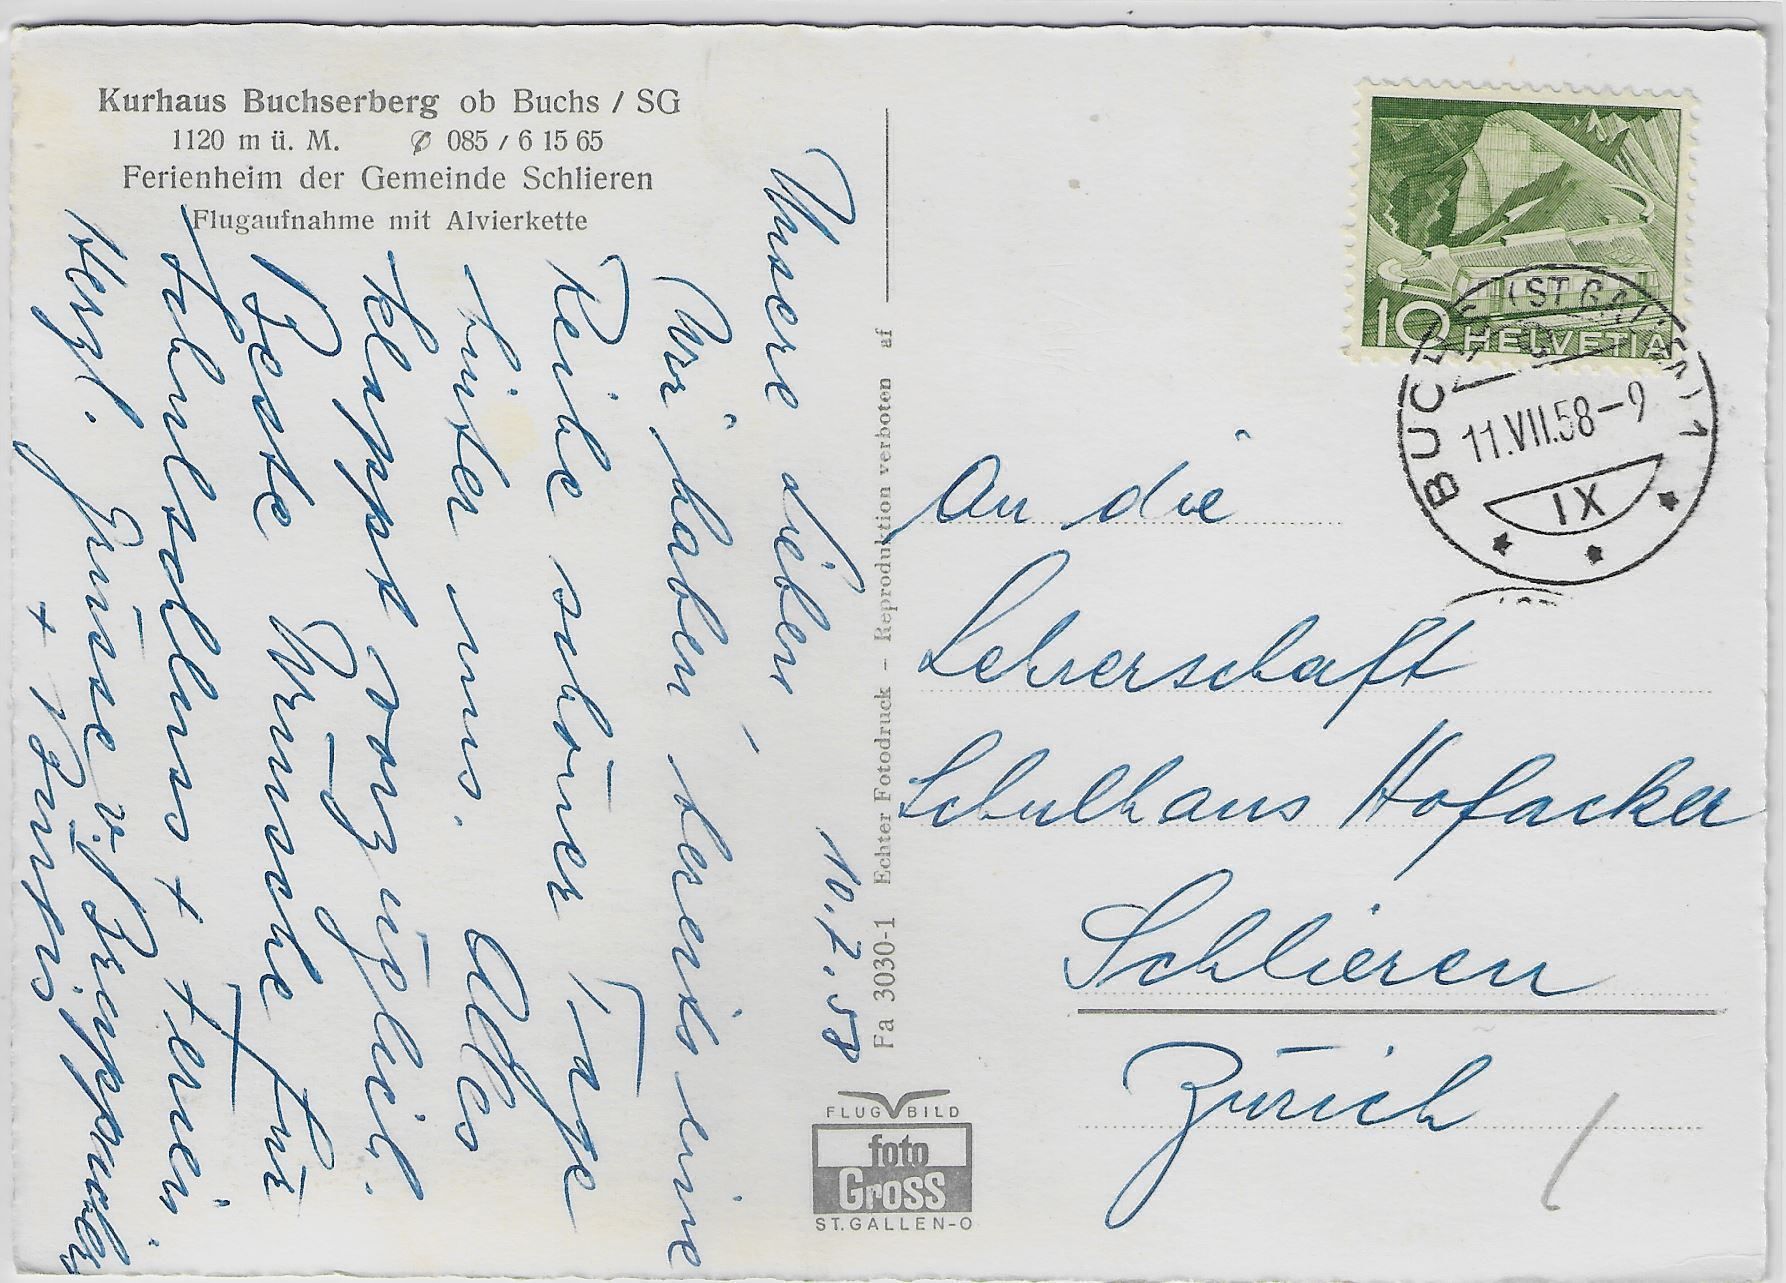 Kurhaus Buchserberg ob Buchs / SG
1120 m ü. M. 085 / 6 15 65
Ferienheim der Gemeinde Schlieren
Flugaufnahme mit Alvierkette
10.7.58
Unsere Lieben,
Wir haben bereits eine
Reihe schöner Tage
hinter uns. Alles
klappt vorzüglich.
Beste Wünsche für
Schulschluss + Ferien.
Herzl. Grüsse v.
+
Fa 3030-1 Echter Fotodruck – Reproduktion verboten af
FLUG BILD
foto
Gross
ST. GALLEN-O
10 HELVETIA
BUCHS (ST GALLEN) 1
11.VII.58–9
IX
An die
Lehrerschaft
Schulhaus Hofacker
Schlieren
Zürich